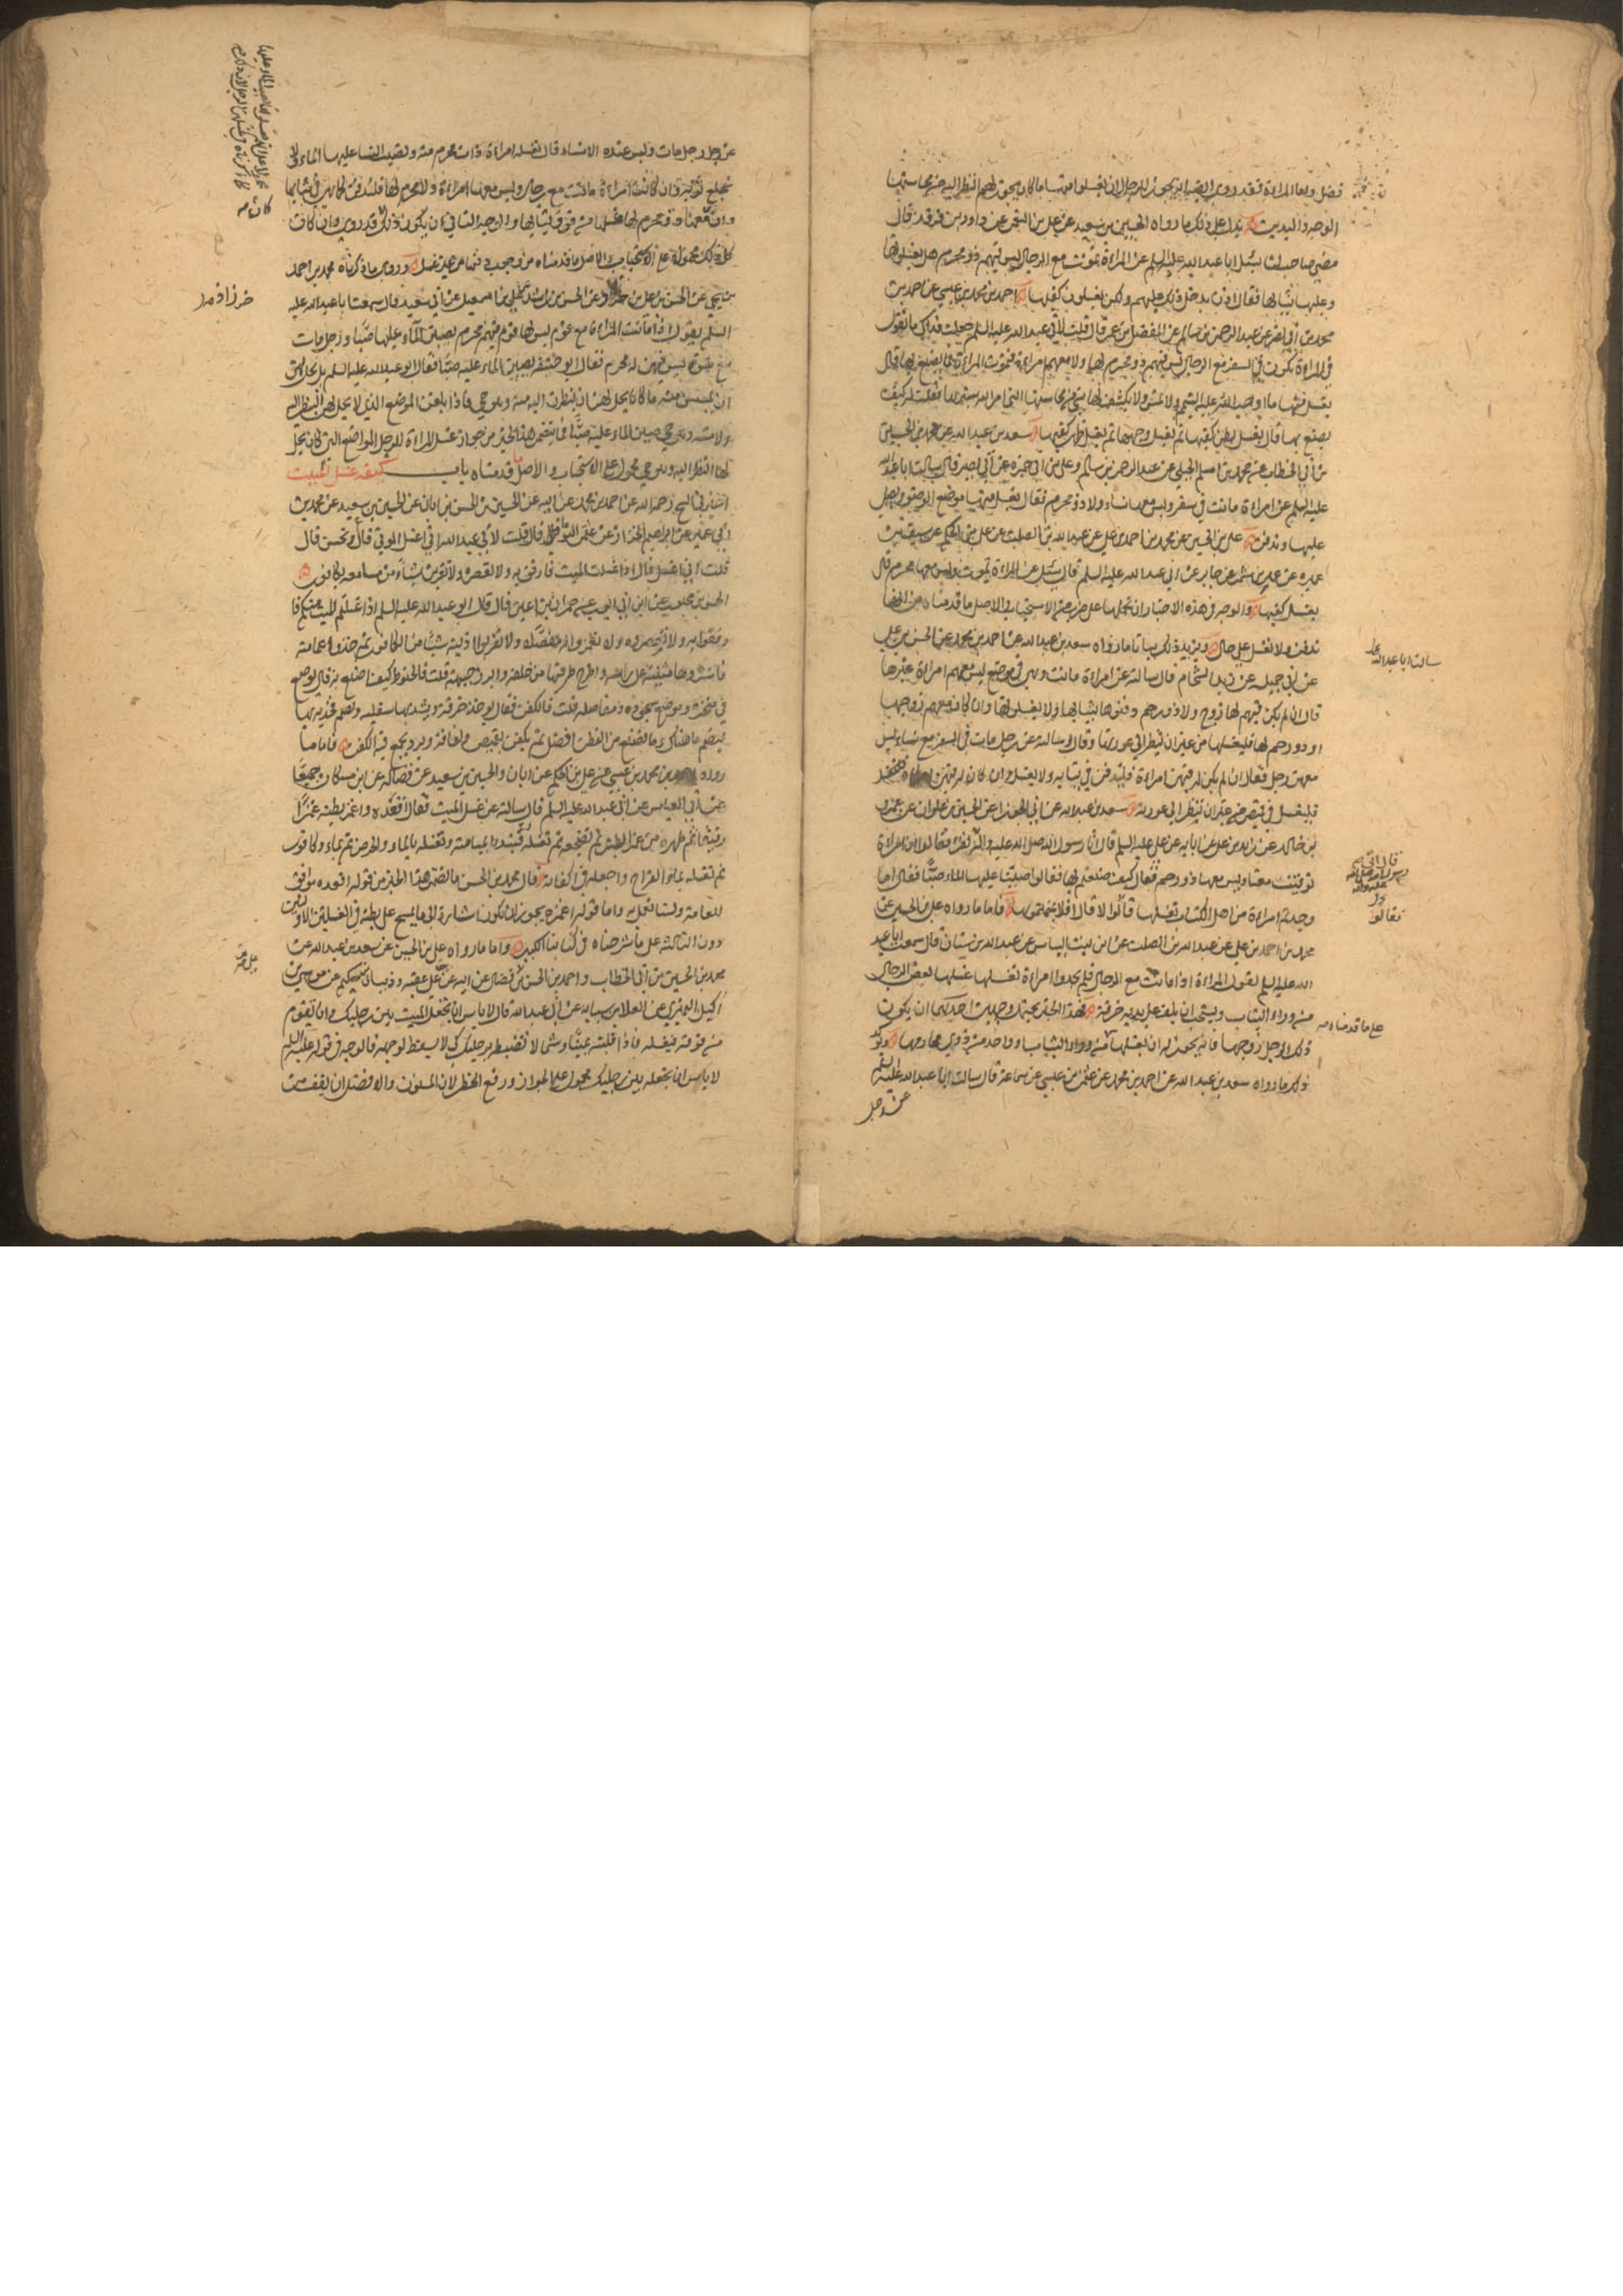 فضل واما المراة فقد روي ايضا انه يجوز للرجال ان يغسلوا منها ما كان يجوز لهم النظر اليه في حياتها
الوجه واليدين يدل على ذلك ما رواه الحسين بن سعيد عن علي بن النعمن عن داود بن فرقد قال
مضى صاحب لنا يسئل ابا عبد الله عليه السلم عن المراة تموت مع الرجال ليس فيهم ذو محرم هل يغسلونها
وعليها ثيابها فقال اذن يدخل ذلك عليهم ولكن يغسلون كفيها احمد بن محمد بن عيسى عن احمد بن
محمد بن ابي نصر عن عبد الرحمن بن سالم عن المفضل بن عمر قال قلت لابي عبد الله عليه السلم جعلت فداك ما تقول
في المراة تكون في السفر مع الرجال ليس فيهم ذو محرم لها ولا معهم امراة فتموت المراة ما يصنع بها قال
يغسل منها ما اوجب الله عليه التيمم ولا تمس ولا يكشف لها شي من محاسنها التي امر الله بسترها فقلت كيف
يصنع بها قال يغسل بطن كفيها ثم يغسل وجهها ثم يغسل ظهر كفيها سعد بن عبد الله عن محمد بن الحسين
بن ابي الخطاب عن محمد بن اسلم الجبلي عن عبد الرحمن بن سالم وعلي بن ابي حمزه عن ابي بصير قال سالت ابا عبد الله
عليه السلم عن امراة ماتت في سفر وليس معها نساء ولا ذو محرم فقال يغسل منها موضع الوضوء ويصلى
عليها وتدفن علي بن الحسين عن محمد بن احمد بن علي عن عبد الله بن الصلت عن علي بن الحكم عن سيف بن
عميره عن عمرو بن شمر عن جابر عن ابي عبد الله عليه السلم قال سئل عن المراة تموت وليس معها محرم قال
يغسل كفيها والوجه في هذه الاخبار ان نحملها على ضرب من الاستحباب والاصل ما قدمناه من انها
تدفن ولا تغسل على حال ويزيد ذلك بيانا ما رواه سعد بن عبد الله عن احمد بن محمد عن الحسن بن علي
عن ابي جميله عن زيد الشحام قال سالته عن امراة ماتت وهي في موضع ليس معهم امراة غيرها
قال ان لم يكن فيهم لها زوج ولا ذو رحم دفنوها بثيابها ولا يغسلونها وان كان معهم زوجها
او ذو رحم لها فليغسلها من غير ان ينظر الى عورتها وقال وسالته عن رجل مات في السفر مع نساء ليس
معهن رجل فقال ان لم يكن له فيهن امراة فليدفن في ثيابه ولا يغسل وان كان له فيهن امراة
فليغسل في قميص من غير ان تنظر الى عورته سعد بن عبد الله عن ابي الجوزا عن الحسين بن علوان عن عمرو
بن خالد عن زيد بن علي عن ابايه عن علي عليه السلم قال اتى رسول الله صلى الله عليه واله نفر فقالوا ان امراة
توفيت معنا وليس معها ذو رحم فقال كيف صنعتم بها فقالوا صببنا عليها الماء صبا فقال اما
وجدتم امراة من اهل الكتاب تغسلها قالوا لا قال افلا يممتموها فاما ما رواه علي بن الحسين عن
محمد بن احمد بن علي عن عبد الله بن الصلت عن ابن بنت الياس عن عبد الله بن سنان قال سمعت ابا عبد
الله عليه السلم يقول المراة اذا ماتت مع الرجال فلم يجدوا امراة تغسلها غسلها بعض الرجال
من وراء الثياب ويستحب ان يلف على يديه خرقة فهذا الخبر يحتمل وجهين احدهما ان يكون
ذلك الرجل زوجها فانه يجوز له ان يغسلها من وراء الثياب او واحد من ذوي محارمها ويؤكد
ذلك ما رواه سعد بن عبد الله عن احمد بن محمد عن عثمن بن عيسى عن سماعة قال سالت ابا عبد الله عليه السلم
عن رجل
سالت ابا عبد الله
قال اتى
رسول الله صلى الله
عليه واله
فقالوا
على ما قدمناه
عن رجل مات وليس عنده الا نساء قال تغسله امراة ذات محرم منه وتصب النساء عليها الماء ولا
تخلع ثوبه وان كانت امراة ماتت مع رجال وليس معها امراة ولا محرم لها فلتدفن كما هي في ثيابها
وان كان معها ذو محرم لها غسلها من فوق ثيابها والوجه الثاني ان يكون
كل ذلك محمولا على الاستحباب والاصل ما قدمناه من وجوب دفنها من غير غسل وروى ما ذكرناه محمد بن احمد
بن يحيى عن الحسن بن علي عن ابي سعيد قال سمعت ابا عبد الله عليه
السلم يقول اذا ماتت المراة مع قوم ليس لها فيهم محرم يصبون الماء عليها صبا ورجل مات
مع نسوة ليس فيهن له محرم فقال ابو حنيفه يصببن الماء عليه صبا فقال ابو عبد الله عليه السلم بل يحل لهن
ان يمسسن منه ما كان يحل لهن ان ينظرن اليه منه وهو حي فاذا بلغن الموضع الذي لا يحل لهن النظر اليه
ولا مسه وهو حي صببن الماء عليه صبا فما يتضمن هذا الخبر من جواز غسل المراة للرجل المواضع التي كان يحل
لها النظر اليه وهو حي محمول على الاستحباب والاصل ما قدمناه باب كيفيه غسل الميت
اخبرني الشيخ رحمه الله عن احمد بن محمد عن ابيه عن الحسين بن الحسن بن ابان عن الحسين بن سعيد عن محمد بن
ابي عمير عن ابراهيم الخزاز عن عثمن النوا قال قلت لابي عبد الله اني اغسل الموتى قال وتحسن قال
قلت اني اغسل قال اذا غسلت الميت فارفق به ولا تعصره ولا تقربن شيئا من مسامعه بكافور
الحسن بن محبوب عن ابن ابي ايوب عن حمران بن اعين قال قال ابو عبد الله عليه السلم اذا غسلتم الميت منكم فا
رفقوا به ولا تعصروه ولا تغمزوا له مفصلا ولا تقربوا اذنيه شيئا من الكافور ثم خذوا عمامته
فانشروها مثنية على راسه واطرح طرفيها من خلفه وابرز جبهته قلت فالحنوط كيف اصنع به قال يوضع
في منخره وموضع سجوده ومفاصله قلت فالكفن فقال يوخذ خرقة ويشد بها سفليه ويضم فخذيه بها
ليضم ما هناك وما يصنع من القطن افضل ثم يكفن بقميص ولفافة وبرد يجمع فيه الكفن فاما ما
رواه احمد بن محمد بن عيسى عن علي بن الحكم عن ابان والحسين بن سعيد عن فضاله عن ابن مسكان جميعا
عن ابي العباس عن ابي عبد الله عليه السلم قال سالته عن غسل الميت فقال اقعده واغمز بطنه غمزا
رفيقا ثم طهره من غمز البطن ثم تضجعه ثم تغسله تبتدئ بميامنه وتغسله بالماء والحرض ثم بماء وكافور
ثم تغسله بماء القراح واجعله في اكفانه قال محمد بن الحسن ما يتضمن هذا الخبر من قوله اقعده موافق
للعامة ولسنا نعمل به واما قوله اغمزه يجوز ان يكون اشارة الى ما يمسح على بطنه في الغسلتين الاوليين
دون الثالثة على ما شرحناه في كتابنا الكبير واما ما رواه علي بن الحسين عن سعد بن عبد الله عن
محمد بن الحسين بن ابي الخطاب واحمد بن الحسن بن علي بن فضال عن ابيه عن علي بن عقبه وذبيان بن حكيم عن موسى بن
اكيل النميري عن العلا بن سيابه عن ابي عبد الله قال لا باس ان تجعل الميت بين رجليك وان تقوم
من فوقه فتغسله فاذا قلبته يمينا وشمالا تضبطه برجليك كي لا يسقط لوجهه فالوجه في قوله عليه السلم
لا باس ان يجعله بين رجليك محمول على الجواز ورفع الحظر لان المسنون والافضل ان يقف من